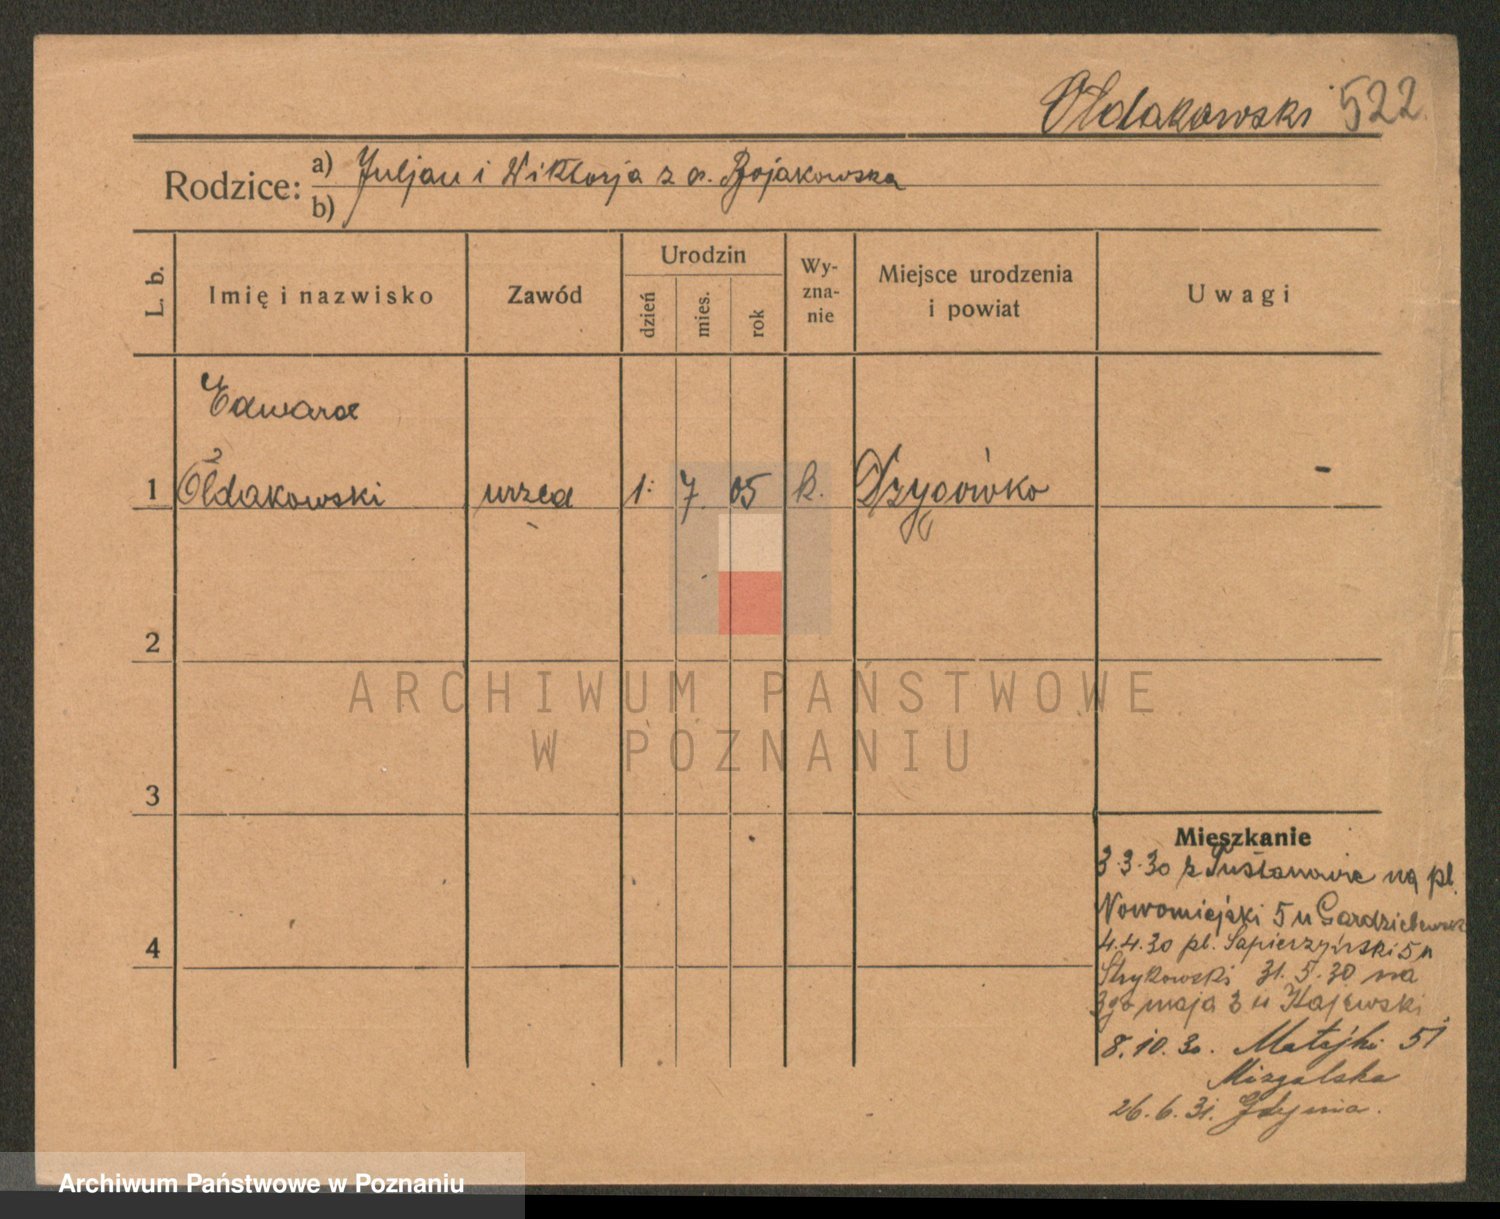 Ołdakowski 522
Rodzice: a) Juljan i Wiktorja z d. Bojakowska
b)
L. b.
Imię i nazwisko
Zawód
Urodzin
dzień
mies.
rok
Wy-
zna-
nie
Miejsce urodzenia
i powiat
Uwagi
Edward
1 Ołdakowski urzęd 1. 7. 05 k. -
2
3
4
Mieszkanie
3.3.30 z na pl.
Nowomiejski 5 u
4.4.30 pl. Sapieżyński 5 u
Strykowski 31.5.30 na
3go maja 3 u Kajewski
8.10.30. Matejki 51
Mizgalska
26.6.31. Gdynia.
ARCHIWUM PAŃSTWOWE
W POZNANIU
Archiwum Państwowe w Poznaniu